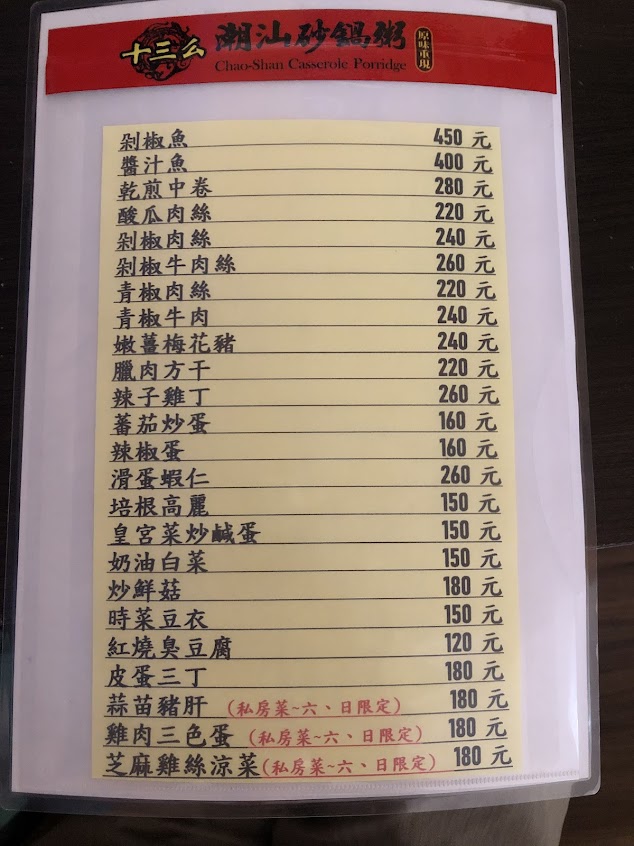 十三么 潮汕砂鍋粥 原味重現
Chao-Shan Casserole Porridge
剁椒魚 450 元
醬汁魚 400 元
乾煎中卷 280 元
酸瓜肉絲 220 元
剁椒肉絲 240 元
剁椒牛肉絲 260 元
青椒肉絲 220 元
青椒牛肉 240 元
嫩薑梅花豬 240 元
臘肉方干 220 元
辣子雞丁 260 元
蕃茄炒蛋 160 元
辣椒蛋 160 元
滑蛋蝦仁 260 元
培根高麗 150 元
皇宮菜炒鹹蛋 150 元
奶油白菜 150 元
炒鮮菇 180 元
時菜豆衣 150 元
紅燒臭豆腐 120 元
皮蛋三丁 180 元
蒜苗豬肝 (私房菜~六、日限定) 180 元
雞肉三色蛋 (私房菜~六、日限定) 180 元
芝麻雞絲涼菜(私房菜~六、日限定) 180 元